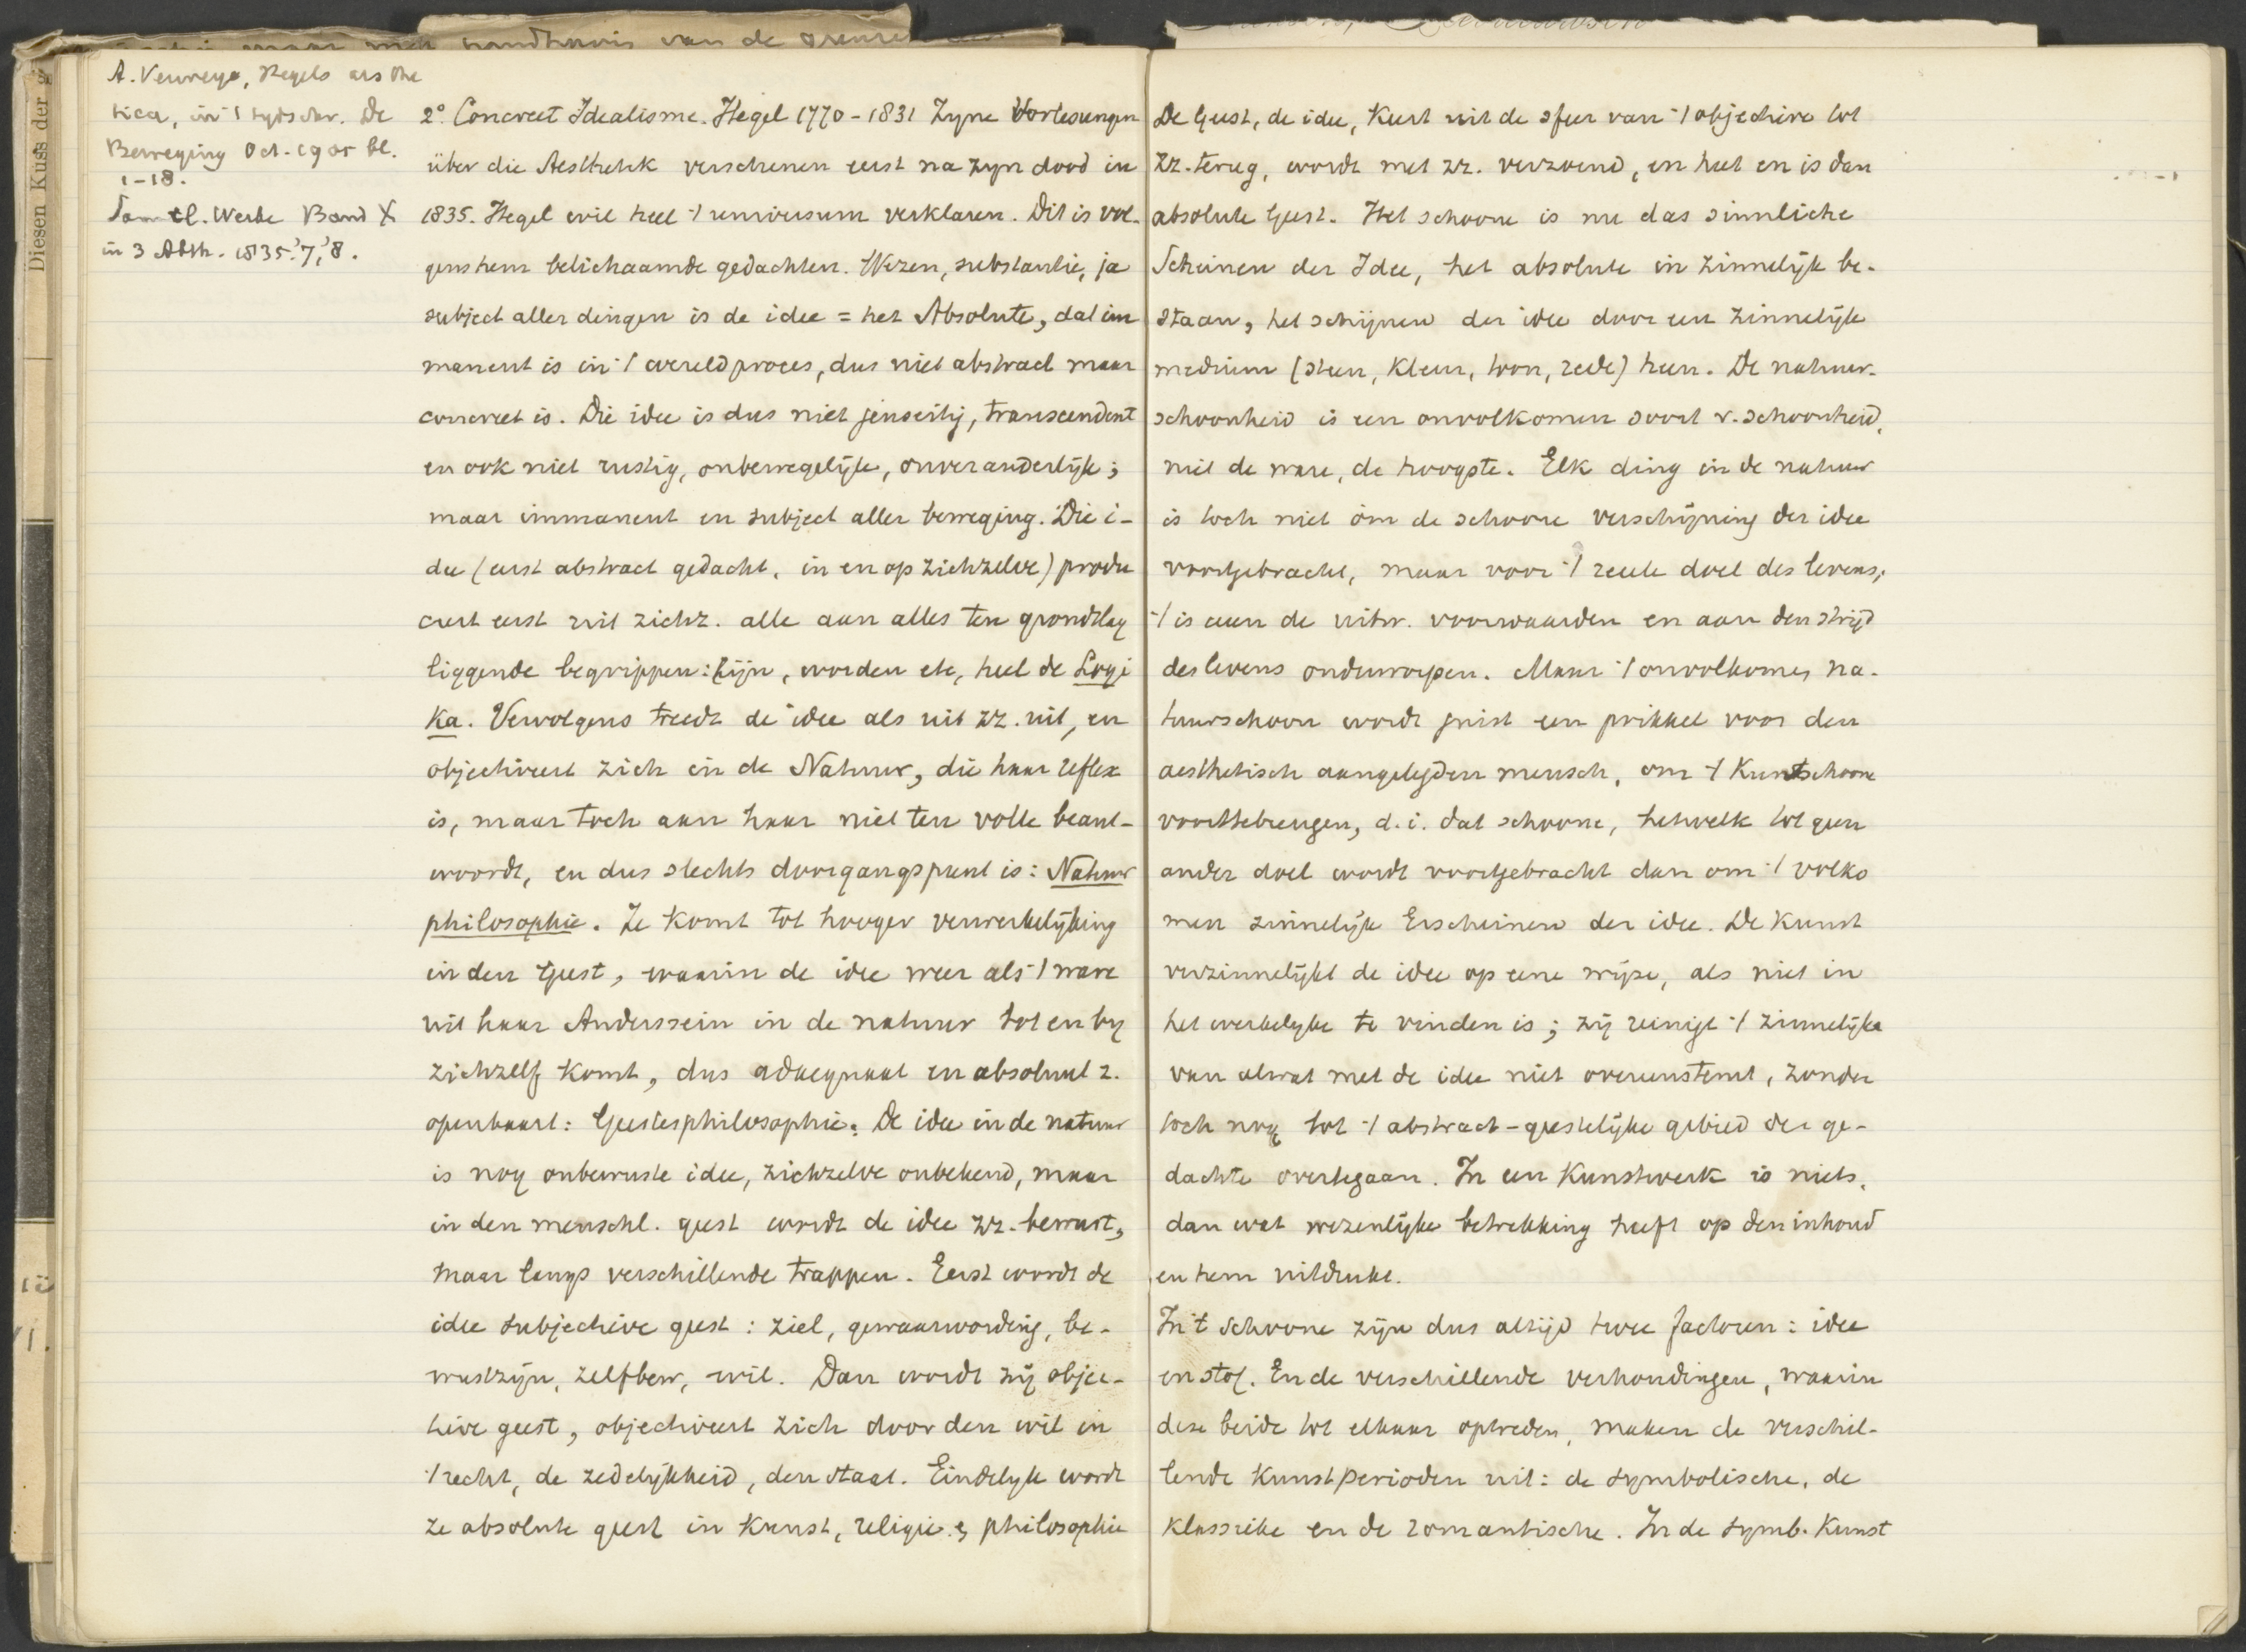 A. Verweyn, Hegels aesthe
tica, in 't tydschr. De
Beweging Oct. 1905 bl.
1-18.
Samtl. Werke Band X
in 3 Abth. 1835.'7,'8.
Diesen Kuss der
2° Concreet Idealisme. Hegel 1770-1831 Zyne Vorlesungen
über die Aesthetik verschenen eerst na zyn dood in
1835. Hegel wil heel 't universum verklaren. Dit is vol-
gens hem belichaamde gedachten. Wezen, substantie, ja
subject aller dingen is de idee = het Absolute, dat im
manent is in 't wereldproces, dus niet abstract maar
concreet is. Die idee is dus niet jenseitig, transcendent
en ook niet rustig, onbewegelijk, onveranderlijk;
maar immanent en subject aller beweging. Die i-
dee (eerst abstract gedacht, in en op zichzelve) produ
ceert eerst uit zichz. alle aan alles ten grondslag
liggende begrippen: zijn, worden etc, heel de Logi
ka. Vervolgens treedt de idee als uit zz. uit, en
objectiveert zich in de Natuur, die haar reflex
is, maar toch aan haar niet ten volle beant-
woordt, en dus slechts doorgangspunt is: Natuur
philosophie. Ze komt tot hooger verwerkelijking
in den Geest, waarin de idee weer als 't ware
uit haar Anderssein in de natuur tot en by
zichzelf komt, dus adaequaat en absoluut z.
openbaart: Geistesphilosophie. De idee in de natuur
is nog onbewuste idee, zichzelve onbekend, maar
in den menschl. geest wordt de idee zz. bewust,
maar langs verschillende trappen. Eerst wordt de
idee subjectieve geest: ziel, gewaarwording, be-
wustzijn, zelfbew, wil. Dan wordt zij objec-
tieve geest, objectiveert zich door den wil in
't recht, de zedelijkheid, den staat. Eindelyk wordt
ze absolute geest in kunst, religie en philosophie
De Geest, de idee, keert uit de sfeer van 't objectieve tot
zz. terug, wordt met zz. verzoend, en heet en is dan
absolute Geest. Het schoone is nu das sinnliche
Scheinen der Idee, het absolute in zinnelijk be-
staan, het schijnen der idee door een zinnelijk
medium (steen, kleur, toon, rede) heen. De natuur-
schoonheid is een onvolkomen soort v. schoonheid,
niet de ware, de hoogste. Elk ding in de natuur
is toch niet óm de schoone verschijning der idee
voortgebracht, maar voor 't reeele doel des levens,
't is aan de uitw. voorwaarden en aan den strijd
des levens onderworpen. Maar 't onvolkomen na-
tuurschoon wordt juist een prikkel voor den
aesthetisch aangelegden mensch, om 't Kunstschoon
voorttebrengen, d.i. dat schoone, hetwelk tot geen
ander doel wordt voortgebracht dan om 't volko
men zinnelijk Erscheinen der idee. De Kunst
verzinnelijkt de idee op eene wijze, als niet in
het werkelyke te vinden is; zij reinigt 't zinnelijke
van alwat met de idee niet overeenstemt, zonder
toch nog tot 't abstract-geestelijke gebied der ge-
dachte overtegaan. In een Kunstwerk is niets,
dan wat wezenlijke betrekking heeft op den inhoud
en hem uitdrukt.
In 't schoone zijn dus altijd twee factoren: idee
en stof. En de verschillende verhoudingen, waarin
deze beide tot elkaar optreden, maken de verschil-
lende Kunstperioden uit: de symbolische, de
klassieke en de romantische. In de symb. Kunst